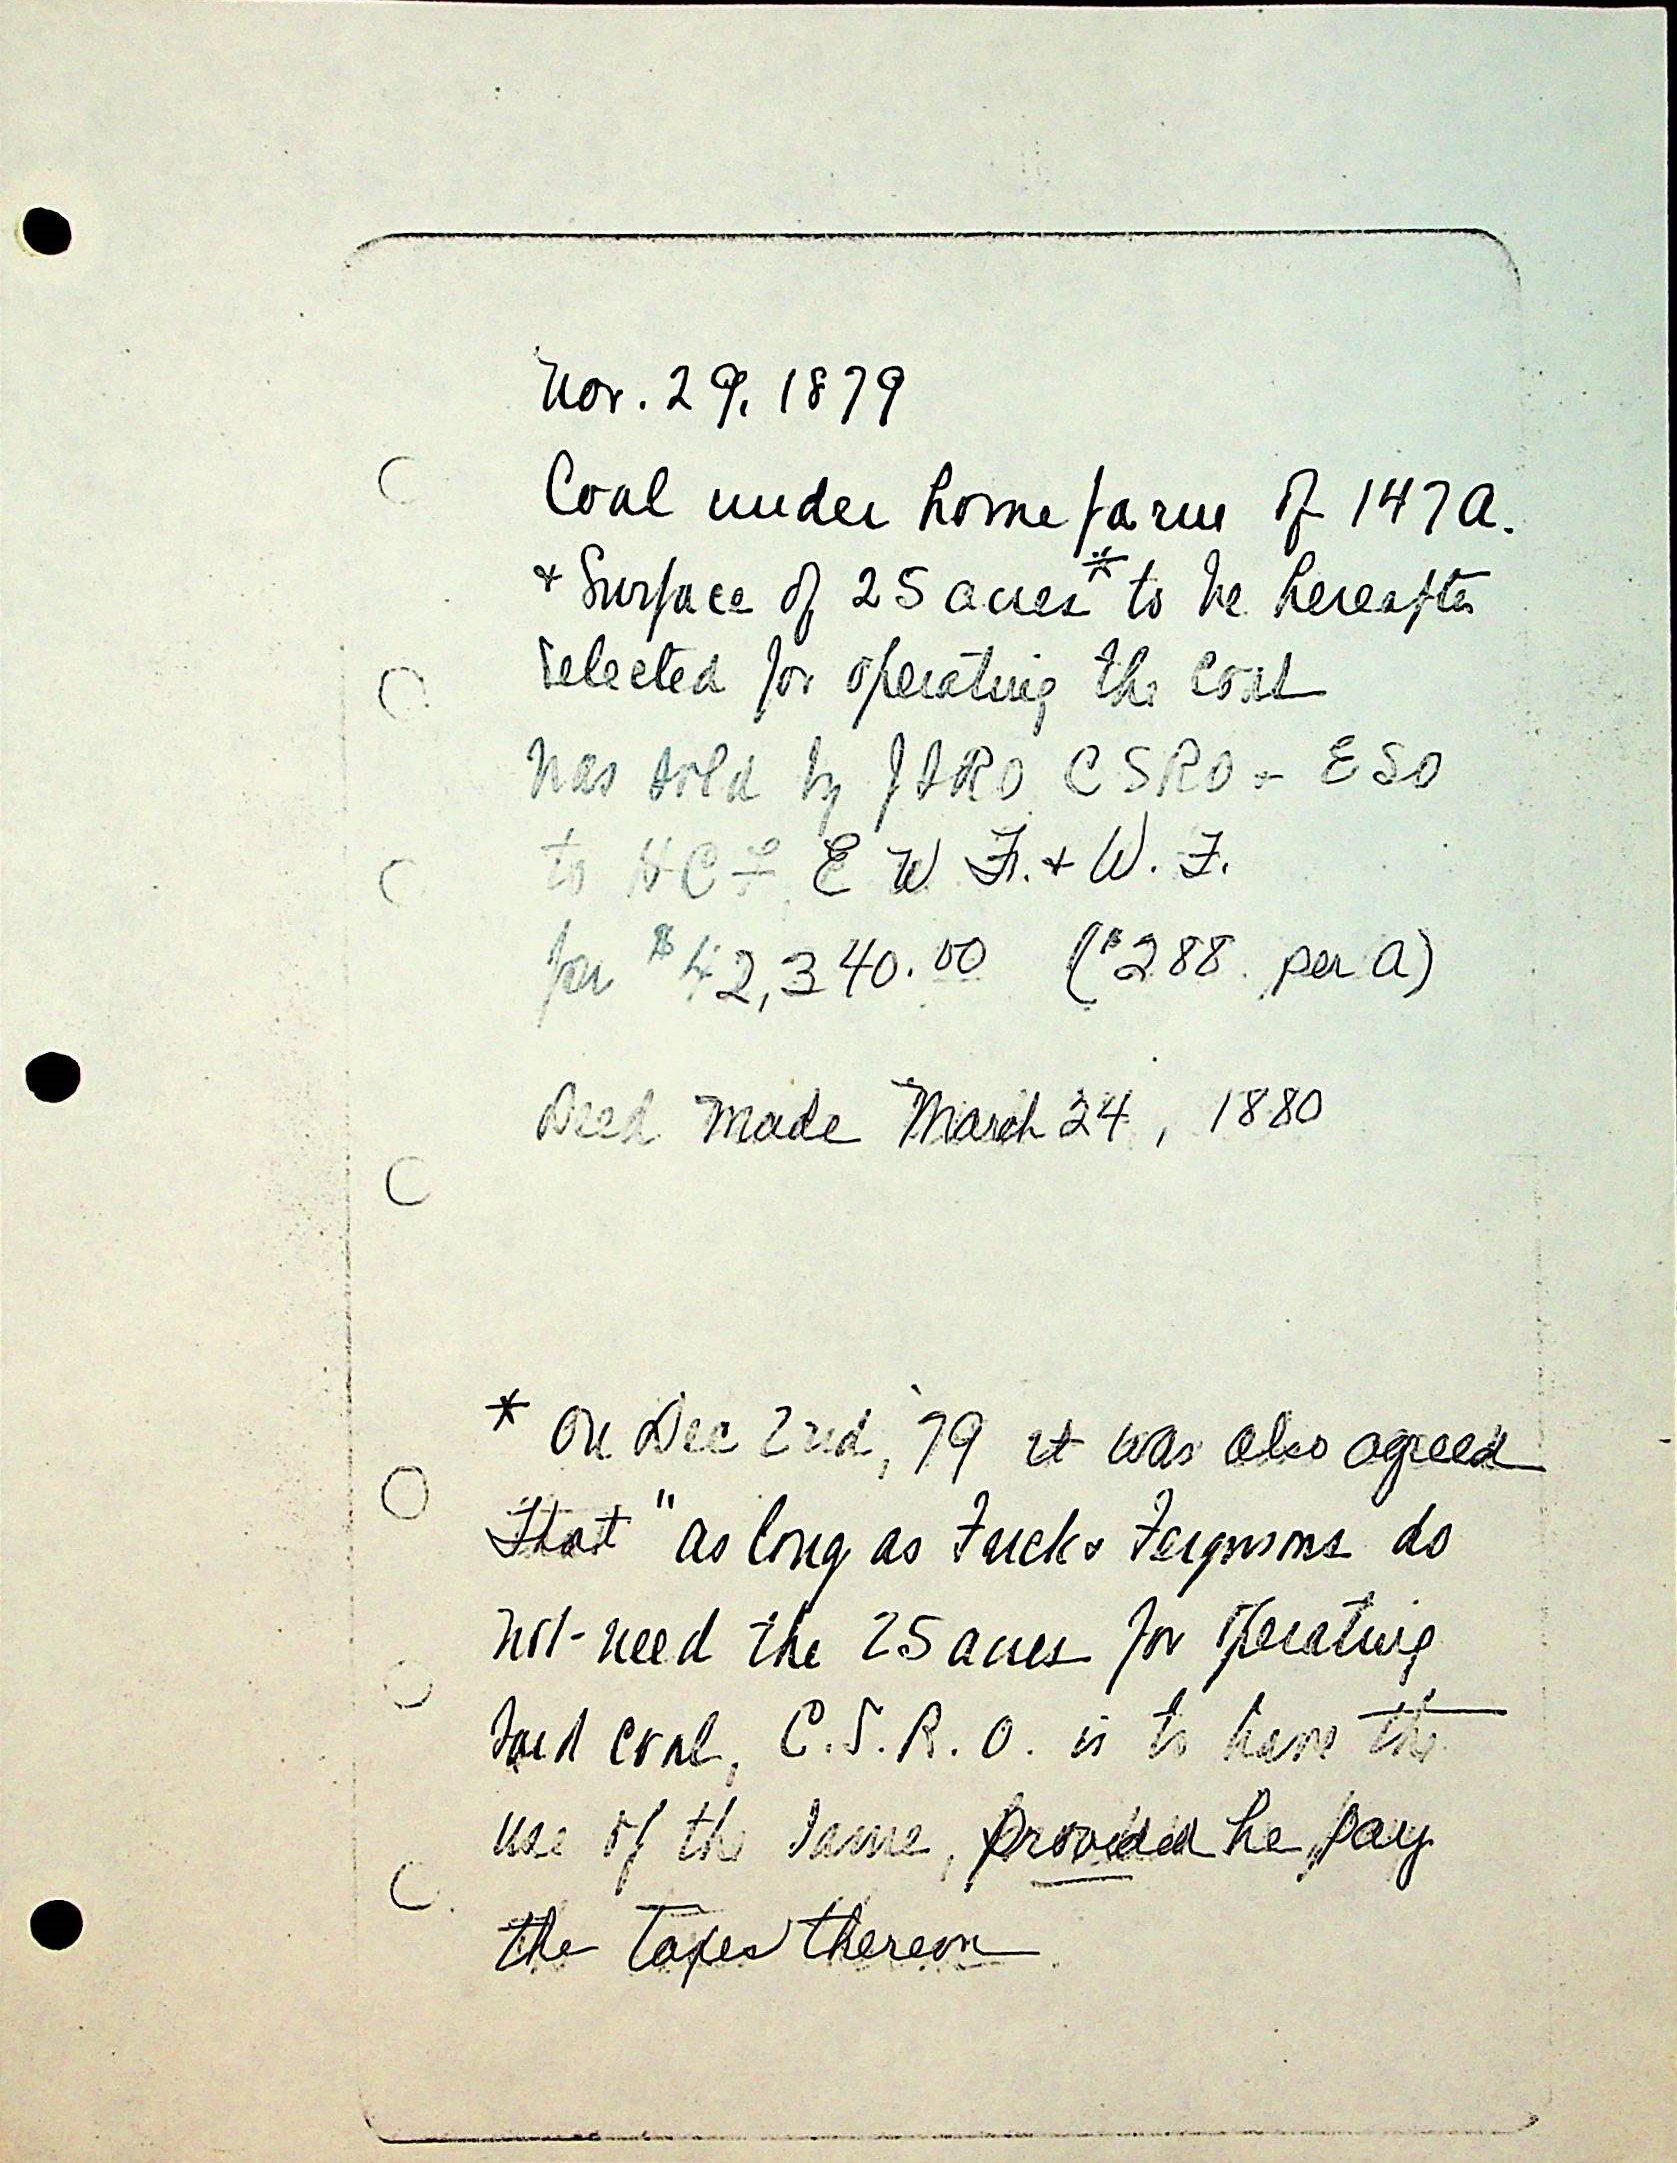 Nov. 29, 1879
Coal under home farm of 147 A.
& Surface of 25 acres* to be hereafter
selected for operating the coal
was sold by JSRO CSRO & ESO
to HCF, E W F. & W. F.
for $42,340.00 ($288. per A)
Deed made March 24, 1880
* On Dec 2nd, '79 it was also agreed
that "as long as Frick & Fergusons do
not need the 25 acres for operating
said coal, C.S.R.O. is to have the
use of the same, provided he pay
the taxes thereon